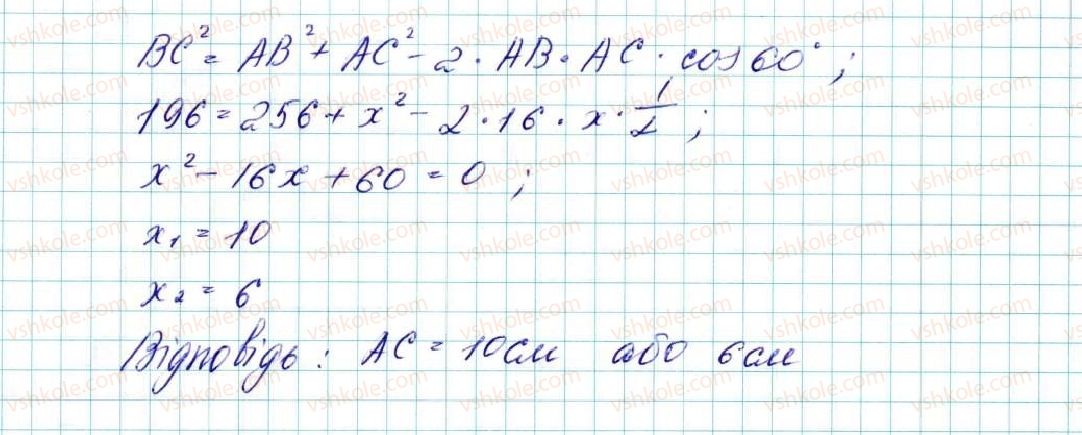 BC² = AB² + AC² - 2 · AB · AC · cos 60° ;
196 = 256 + x² - 2 · 16 · x · 1/2 ;
x² - 16x + 60 = 0 ;
x₁ = 10
x₂ = 6
Відповідь : AC = 10 см або 6 см